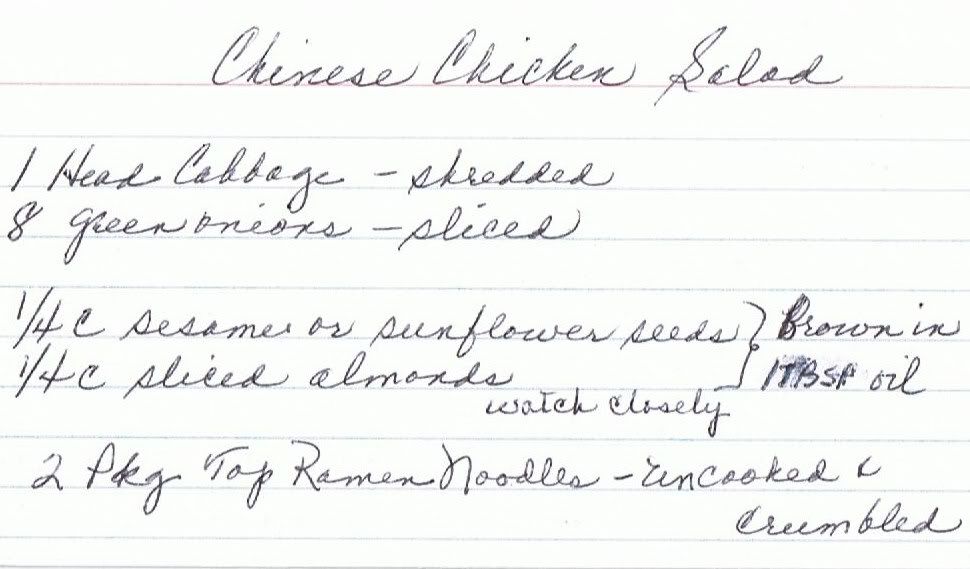 Chinese Chicken Salad
1 Head Cabbage - shredded
8 green onions - sliced
1/4 c sesame or sunflower seeds } Brown in
1/4 c sliced almonds 1 TBSP oil
watch closely
2 Pkg Top Ramen Noodles - uncooked &
crumbled